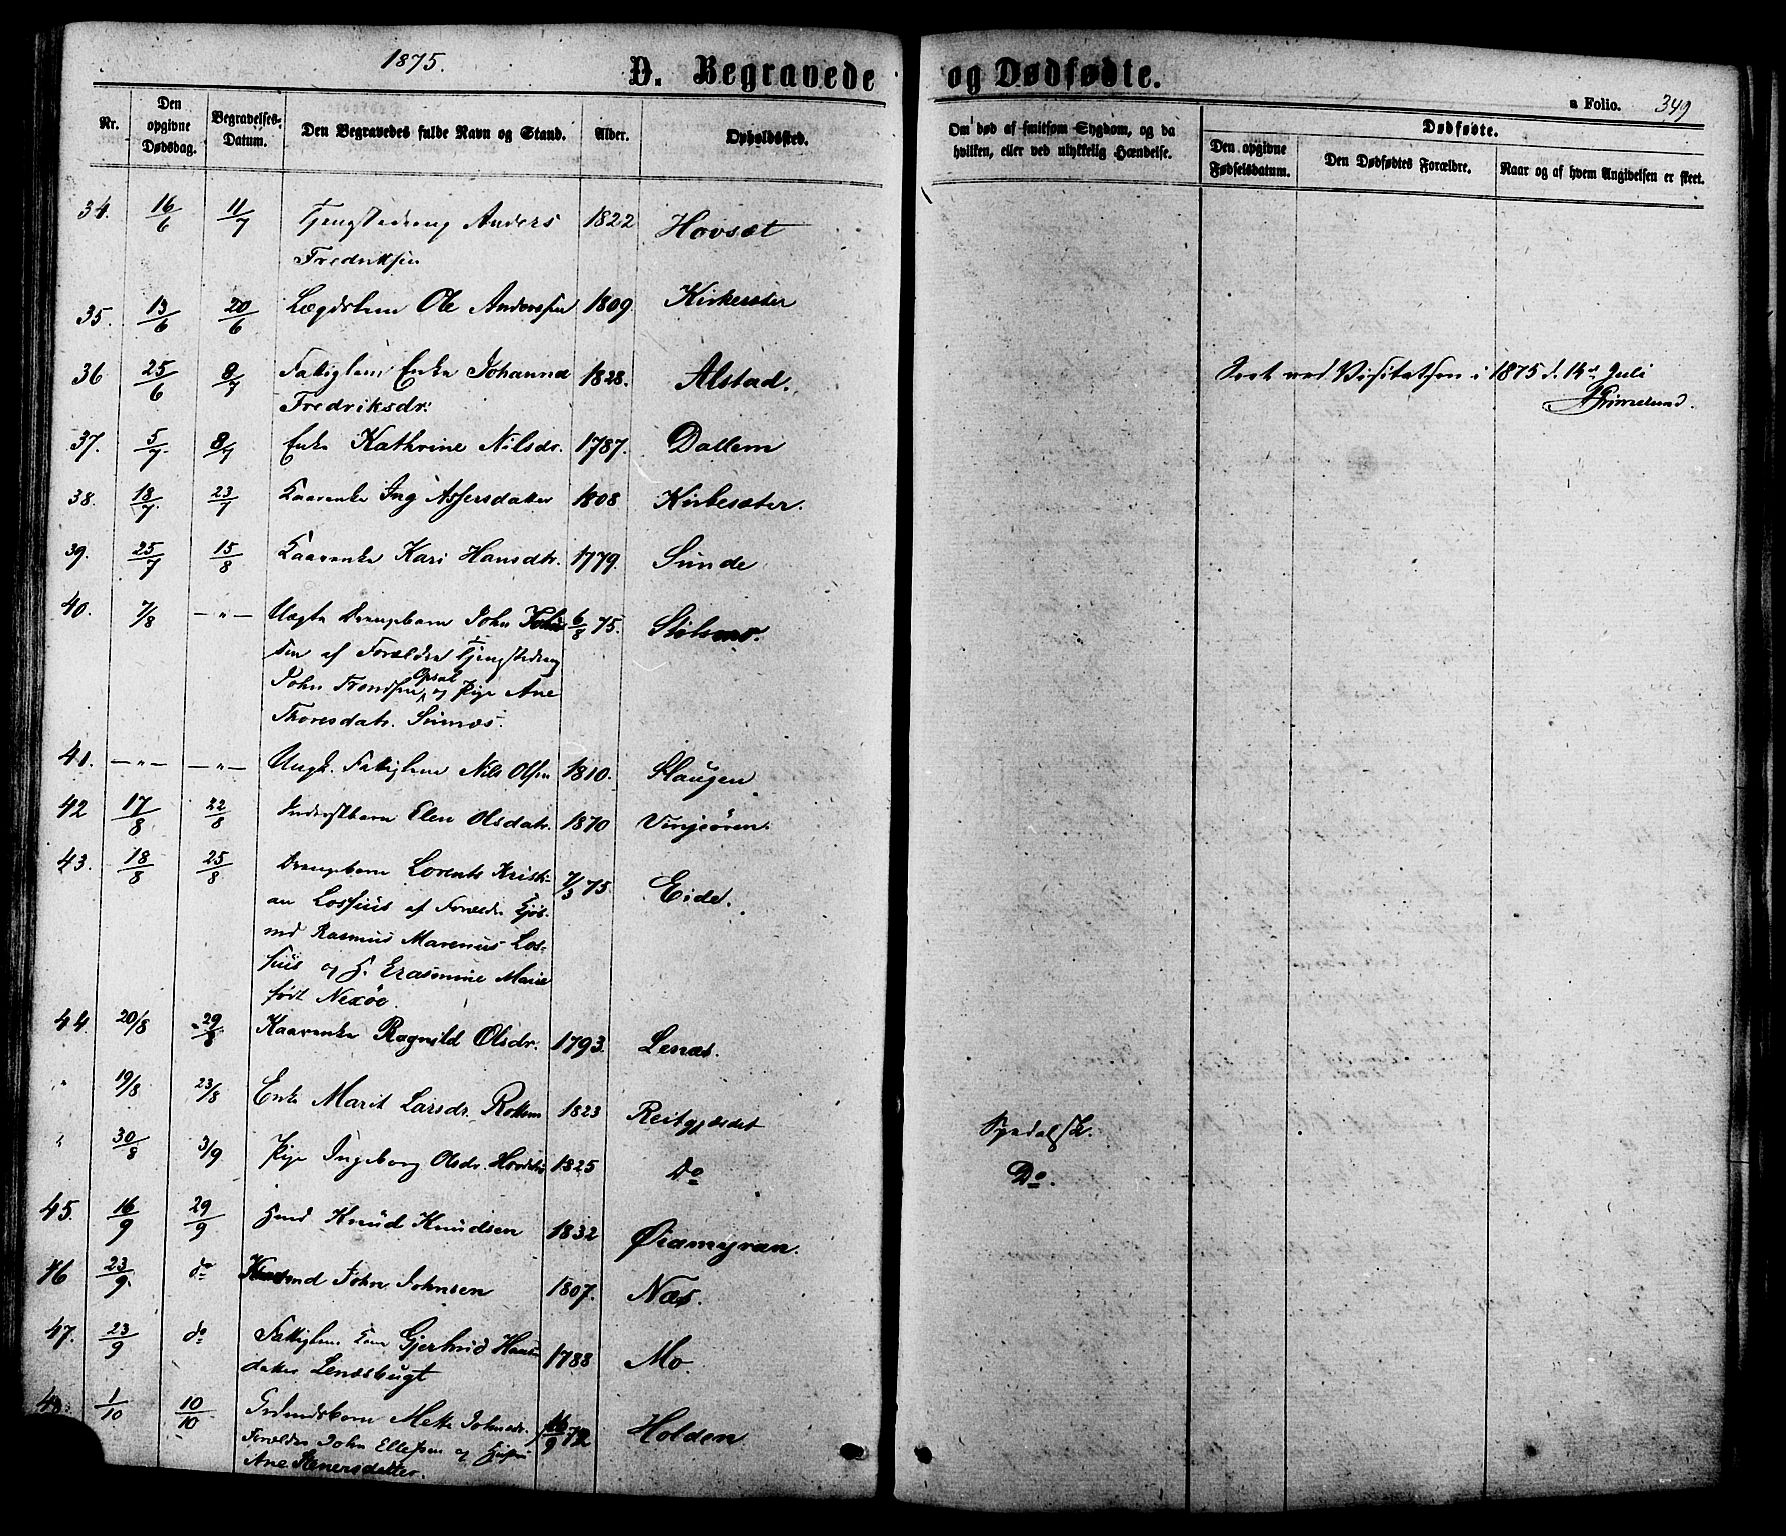 1875.
D. Begravede
og Dødfødte.
a Folio. 349
Nr.
Den opgivne Dødsdag.
Begravelses-Datum.
Den Begravedes fulde Navn og Stand.
Alder.
Opholdssted.
Om død af smitsom Sygdom, og da hvilken, eller ved ulykkelig Hændelse.
Dødfødte.
Den opgivne Fødselsdatum.
Den Dødfødtes Forældre.
Naar og af hvem Angivelsen er skeet.
34. 16/6 11/7 Tjenestedreng Anders 1822 Hovsæt
Fredriksen
35. 13/6 20/6 Lægdslem Ole Anderssen 1809. Kirkesæter
36 25/6 8/7 Fattiglem Enke Johanna 1828. Alstad.
Fredriksdr:
Seet ved Visitatsen i 1875 d. Juli
Grimelund.
37. 5/7 8/7 Enke Kathrine Nilsdr. 1787. Dallem
38. 18/7 23/7 Kaarenke Ing Assersdatter 1808 Kirkesæter.
39. 25/7 15/8 Kaarenke Kari Hansdtr. 1779. Sunde
40. 7/8 —"— Uægte Drengebarn John 6/8 75.
sen af Forældre Tjenestedreng
John Trondsen Opsal og Pige Ane
Thoresdatr. Sinnes.
41. —"— —"— Ungk. Fattiglem Nils Olsen 1810. Slaugen
42 17/8 22/8 Inderstbarn Elen Olsdatr. 1870 Vinjeøren.
43. 18/8 25/8 Drengebarn Lorents Kristi- 7/3 75. Eide.
an Lossius af Forældre Kjøb-
md Rasmus Marenus Los-
sius og H. Erasmine Marie
født Nexøe.
44. 20/8 29/8 Kaarenke Ragnild Olsdr. 1793. Lenæs.
" 19/8 23/8 Enke Marit Larsdr. Rottem 1823 Reitgjærdet Spedalsk.
" 30/8 3/9 Pige Ingeborg Olsdr. 1825 Do Do.
45. 16/9 29/9 Knud Knudsen 1832 Øiamyran.
46 23/9. do John Johnsen 1807. Næs.
47. 23/9 do Fattiglem Gjertrud Hans- 1788 Mo
datter Lenæsbugt
1/10 10/10 Mette Johnsdr. 16/9 72 Holden
Forældre John Ellefsen og
Ane Stenersdatter.